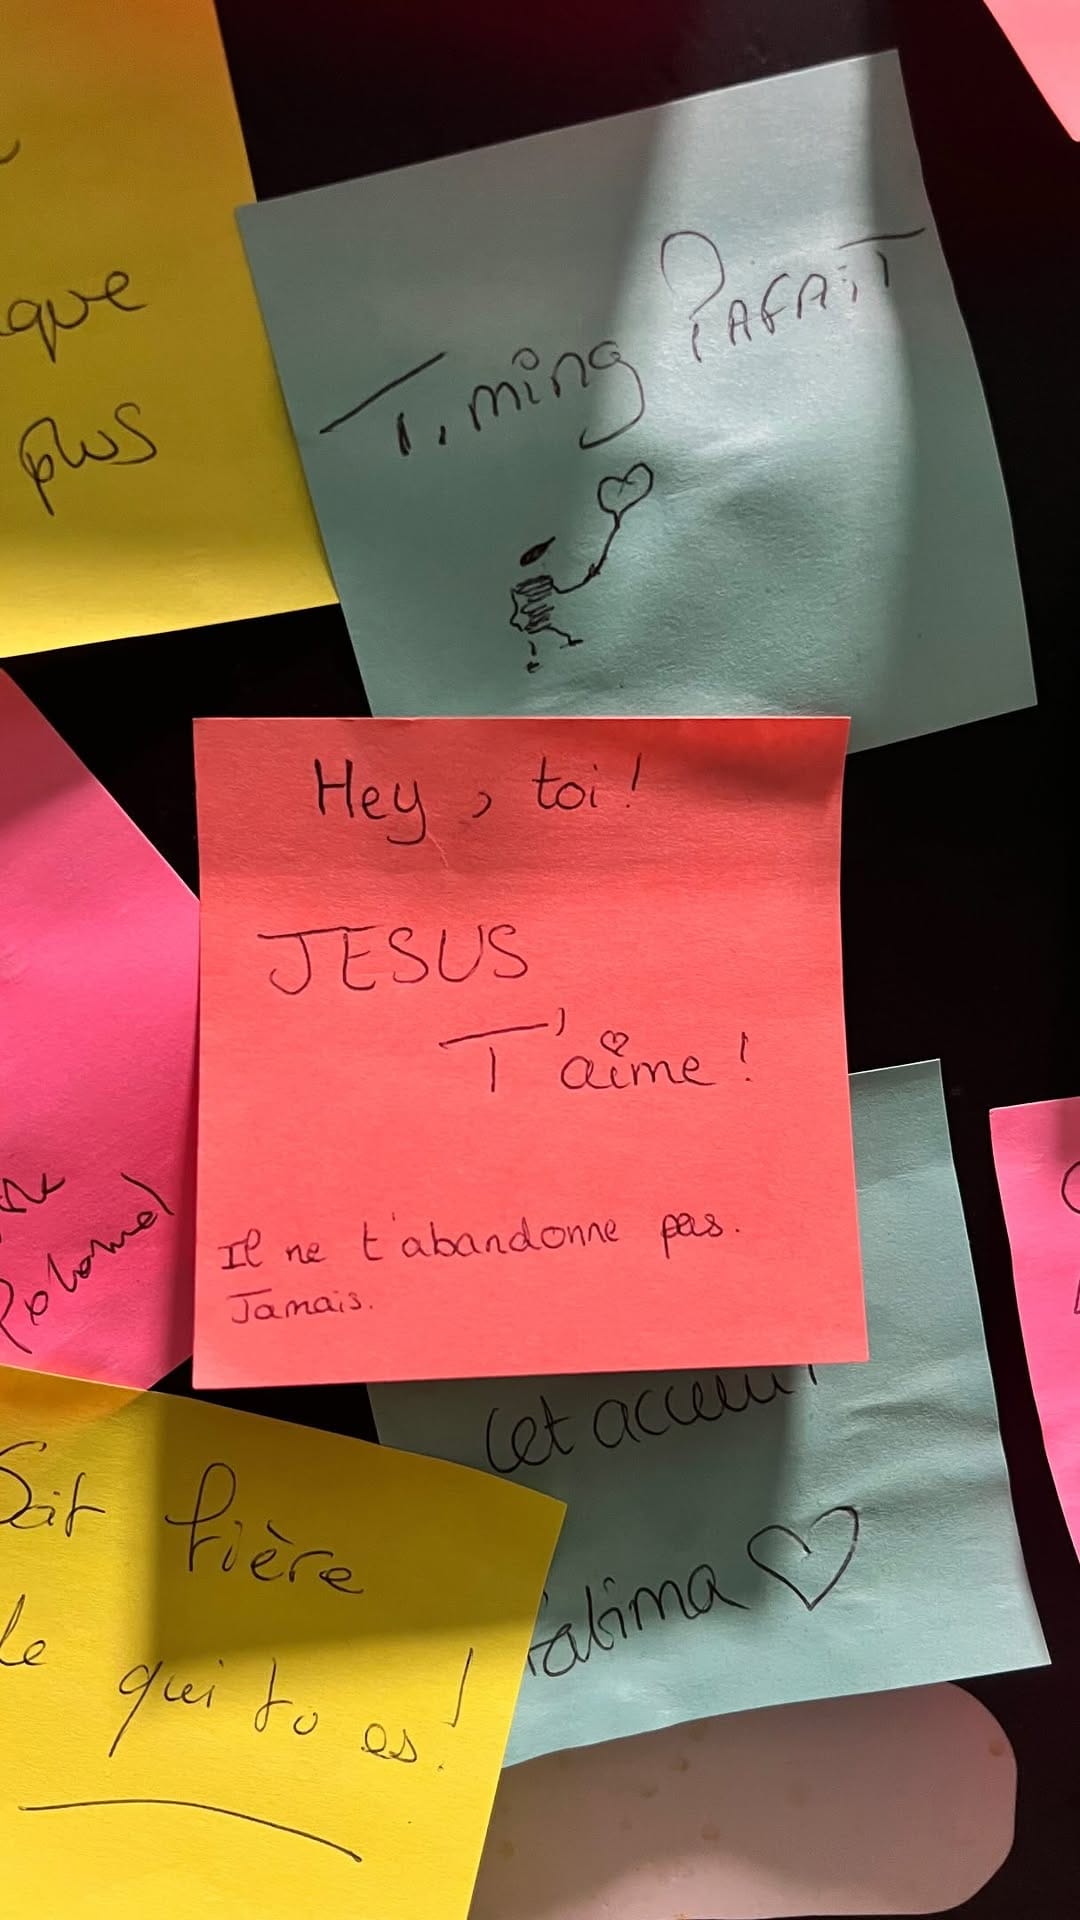 que
plus
Timing PARFAiT
Hey, toi!
JESUS
T'aime!
Il ne t'abandonne pas.
Jamais.
Cet accueil
Fatima
Soit fière
de
qui tu es!